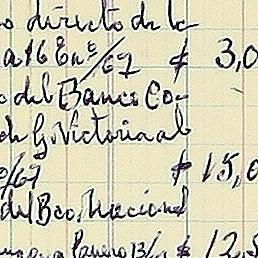 o directo de la
a 16 En º/67 $ 3,0
o del Banco Co-
de G. Victoria al
0/67 $ 15,0
del Bco. Nacional
Enero 13/ $ 12,5